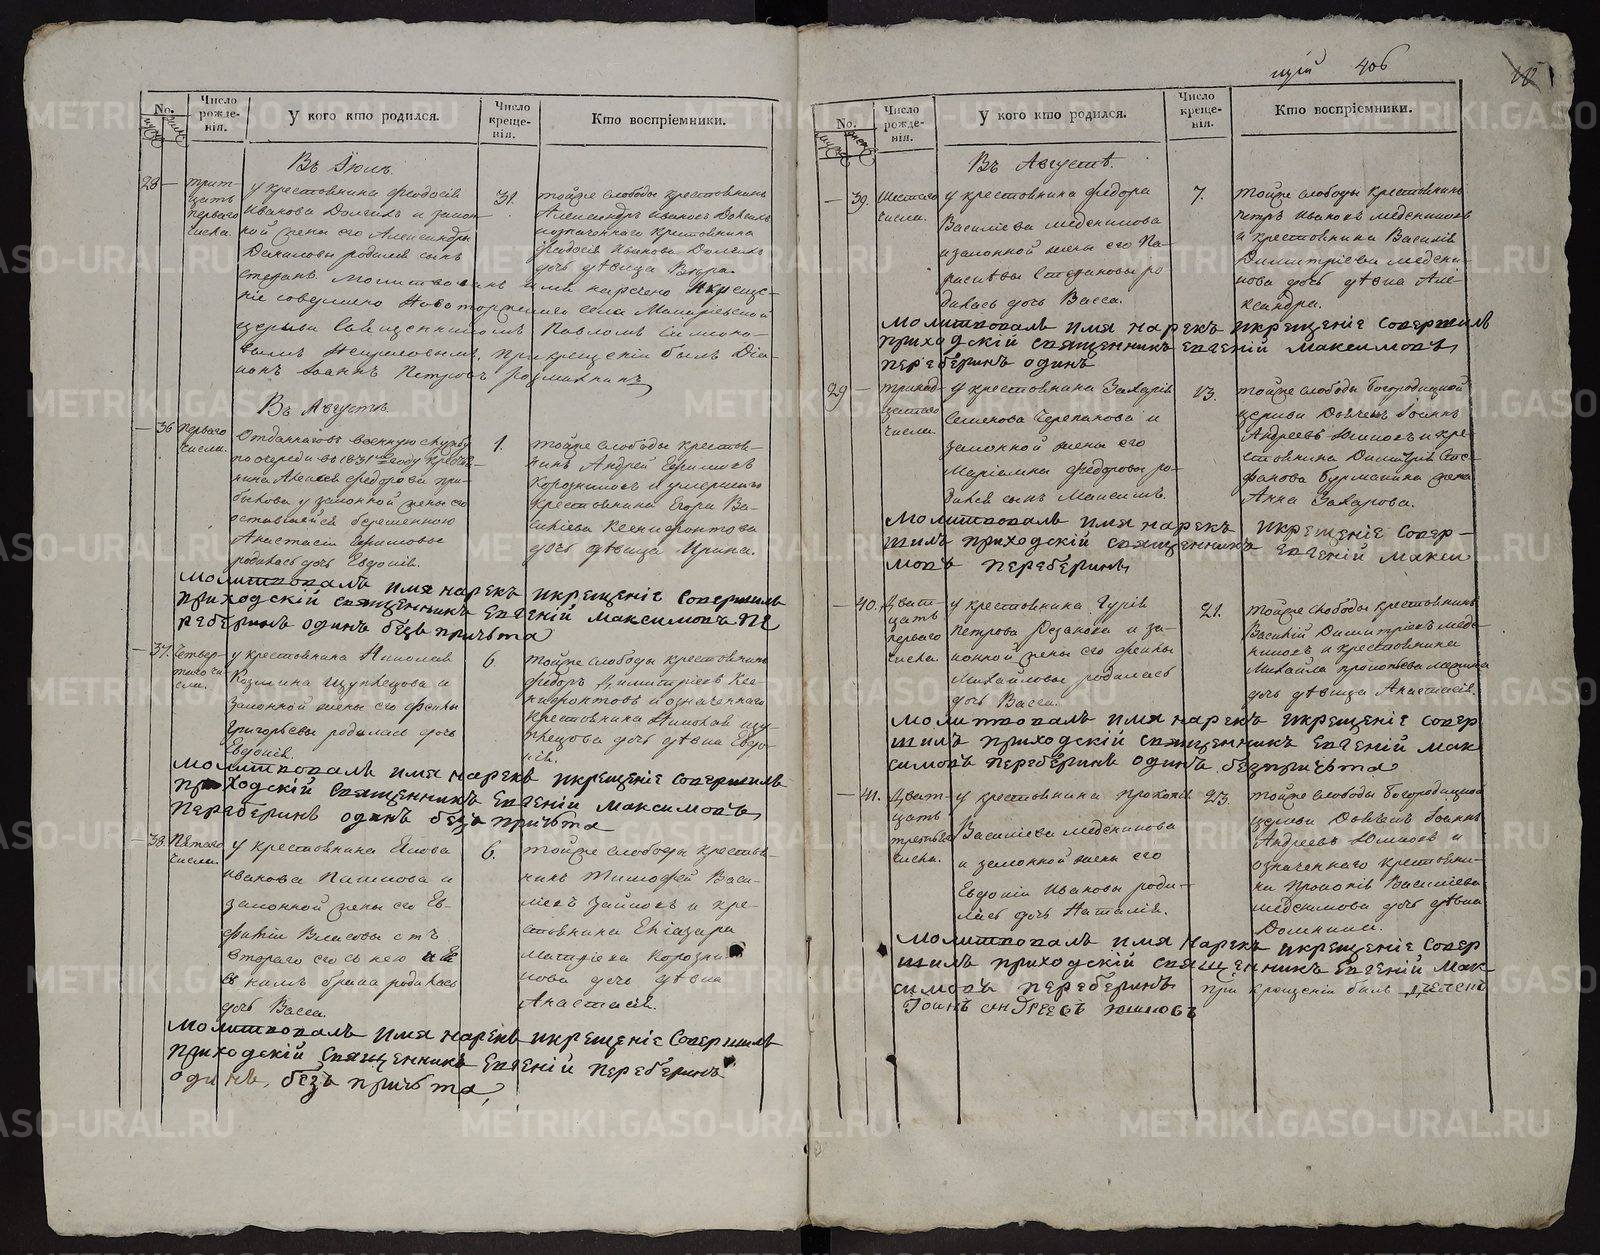 No.
Число рожде-нія.
У кого кто родился.
Число креще-нія.
Кто воспріемники.
Въ Іюлѣ.
28
трит-
цать
перваго
числа.
у крестьянина Феодосія
Иванова и закон-
ной жены его Александры
Даниловы родился сынъ
Стефанъ. Молитвовалъ имя наречено и креще-
ніе совершено Новоторжскаго села
церкви Священникомъ Павломъ Симеоно-
вымъ при крещеніи былъ Діа-
конъ Іоаннъ Петровъ
31.
тойже слободы крестьянинъ
Александръ Ивановъ
означеннаго крестьянина
Феодосія Иванова
дочь дѣвица
Въ Августѣ.
36
перваго
числа.
Отданнаго въ военную службу
по очереди въ 1831 году крестья-
нина Алексѣя Федорова
у законной жены его
оставшейся беременною
Анастасіи Ефимовы
родилась дочь Евдокія.
1.
тойже слободы крестья-
нинъ Андрей
и умершаго
крестьянина Егора Ва-
сильева Ксенофонтова
дочь дѣвица Ирина.
Молитвовалъ имя нарекъ и крещеніе совершилъ
приходскій священникъ Евгеній Максимовъ Пе
реберинъ одинъ безъ причьта
37.
Четвер-
таго чи
сла.
у крестьянина Николая
Козмина Щуплецова и
законной жены его Феклы
Григорьевы родилась дочь
Евдокія.
6.
тойже слободы крестьянинъ
Федоръ Димитріевъ Ксе-
нофонтовъ и означеннаго
крестьянина Николая Щу-
плецова дочь дѣвка Евдо-
кія.
Молитвовалъ имя нарекъ и крещеніе совершилъ
приходскій священникъ Евгеній Максимовъ
Переберинъ одинъ безъ причьта
38.
Пятаго
числа.
у крестьянина Якова
Иванова Пашкова и
законной жены его Ев-
Власовы отъ
втораго его съ нею
съ нимъ брака родилась
дочь Васса.
6.
тойже слободы крестья-
нинъ Тимофей Васи-
льевъ Зайковъ и кре-
стьянина Елiазара
дочь дѣвка
Анастасія.
Молитвовалъ имя нарекъ и крещеніе совершилъ
приходскій священникъ Евгеній Переберинъ
одинъ, безъ причьта,
406
No.
Число рожде-нія.
У кого кто родился.
Число креще-нія.
Кто воспріемники.
Въ Августѣ.
39.
Шестаго
числа.
у крестьянина Федора
Васильева Медсникова
и законной жены его Па-
расковьи Стефановы ро-
дилась дочь Васса.
7.
тойже слободы крестьянинъ
Петръ Ивановъ Медсниковъ
и крестьянина Василія
Димитріева Медсни-
кова дочь дѣвка Але-
ксандра.
Молитвовалъ имя нарекъ и крещеніе совершилъ
приходскій священникъ Евгеній Максимовъ
Переберинъ одинъ
29
тринад-
цатаго
числа.
у крестьянина Захарія
Семенова Черепанова и
законной жены его
Маріамны Федоровы ро-
дился сынъ Максимъ.
13.
тойже слободы Богородицкой
церкви Дьячекъ Іоаннъ
Андреевъ и кре-
стьянина Димитрія Сте-
фанова Бурмакина жена
Анна Захарова.
Молитвовалъ имя нарекъ и крещеніе совер-
шилъ приходскій священникъ Евгеній Макси
мовъ Переберинъ
40.
Дват-
цать
перваго
числа.
у крестьянина Гурія
Петрова и за-
конной жены его Феклы
Михайловы родилась
дочь Васса.
21.
тойже слободы крестьянинъ
Василій Димитріевъ Медс-
никовъ и крестьянина
Михайла Прокопьева
дочь дѣвица Анастасія.
Молитвовалъ имя нарекъ и крещеніе совер
шилъ приходскій священникъ Евгеній Мак
симовъ Переберинъ одинъ безпричьта
41.
Дват-
цать
третьяго
числа.
у крестьянина Прокопія
Васильева Медсникова
и законной жены его
Евдокіи Ивановы роди-
лась дочь Наталія.
23.
тойже слободы Богородицкой
церкви Дьячекъ Іоаннъ
Андреевъ и
означеннаго крестьяни-
на Прокопія Васильева
Медсникова дочь дѣвка
Домника.
Молитвовалъ имя нарекъ и крещеніе совер
шилъ приходскій священникъ Евгеній Мак-
симовъ Переберинъ при крещеніи былъ
Іоанъ Андреевъ